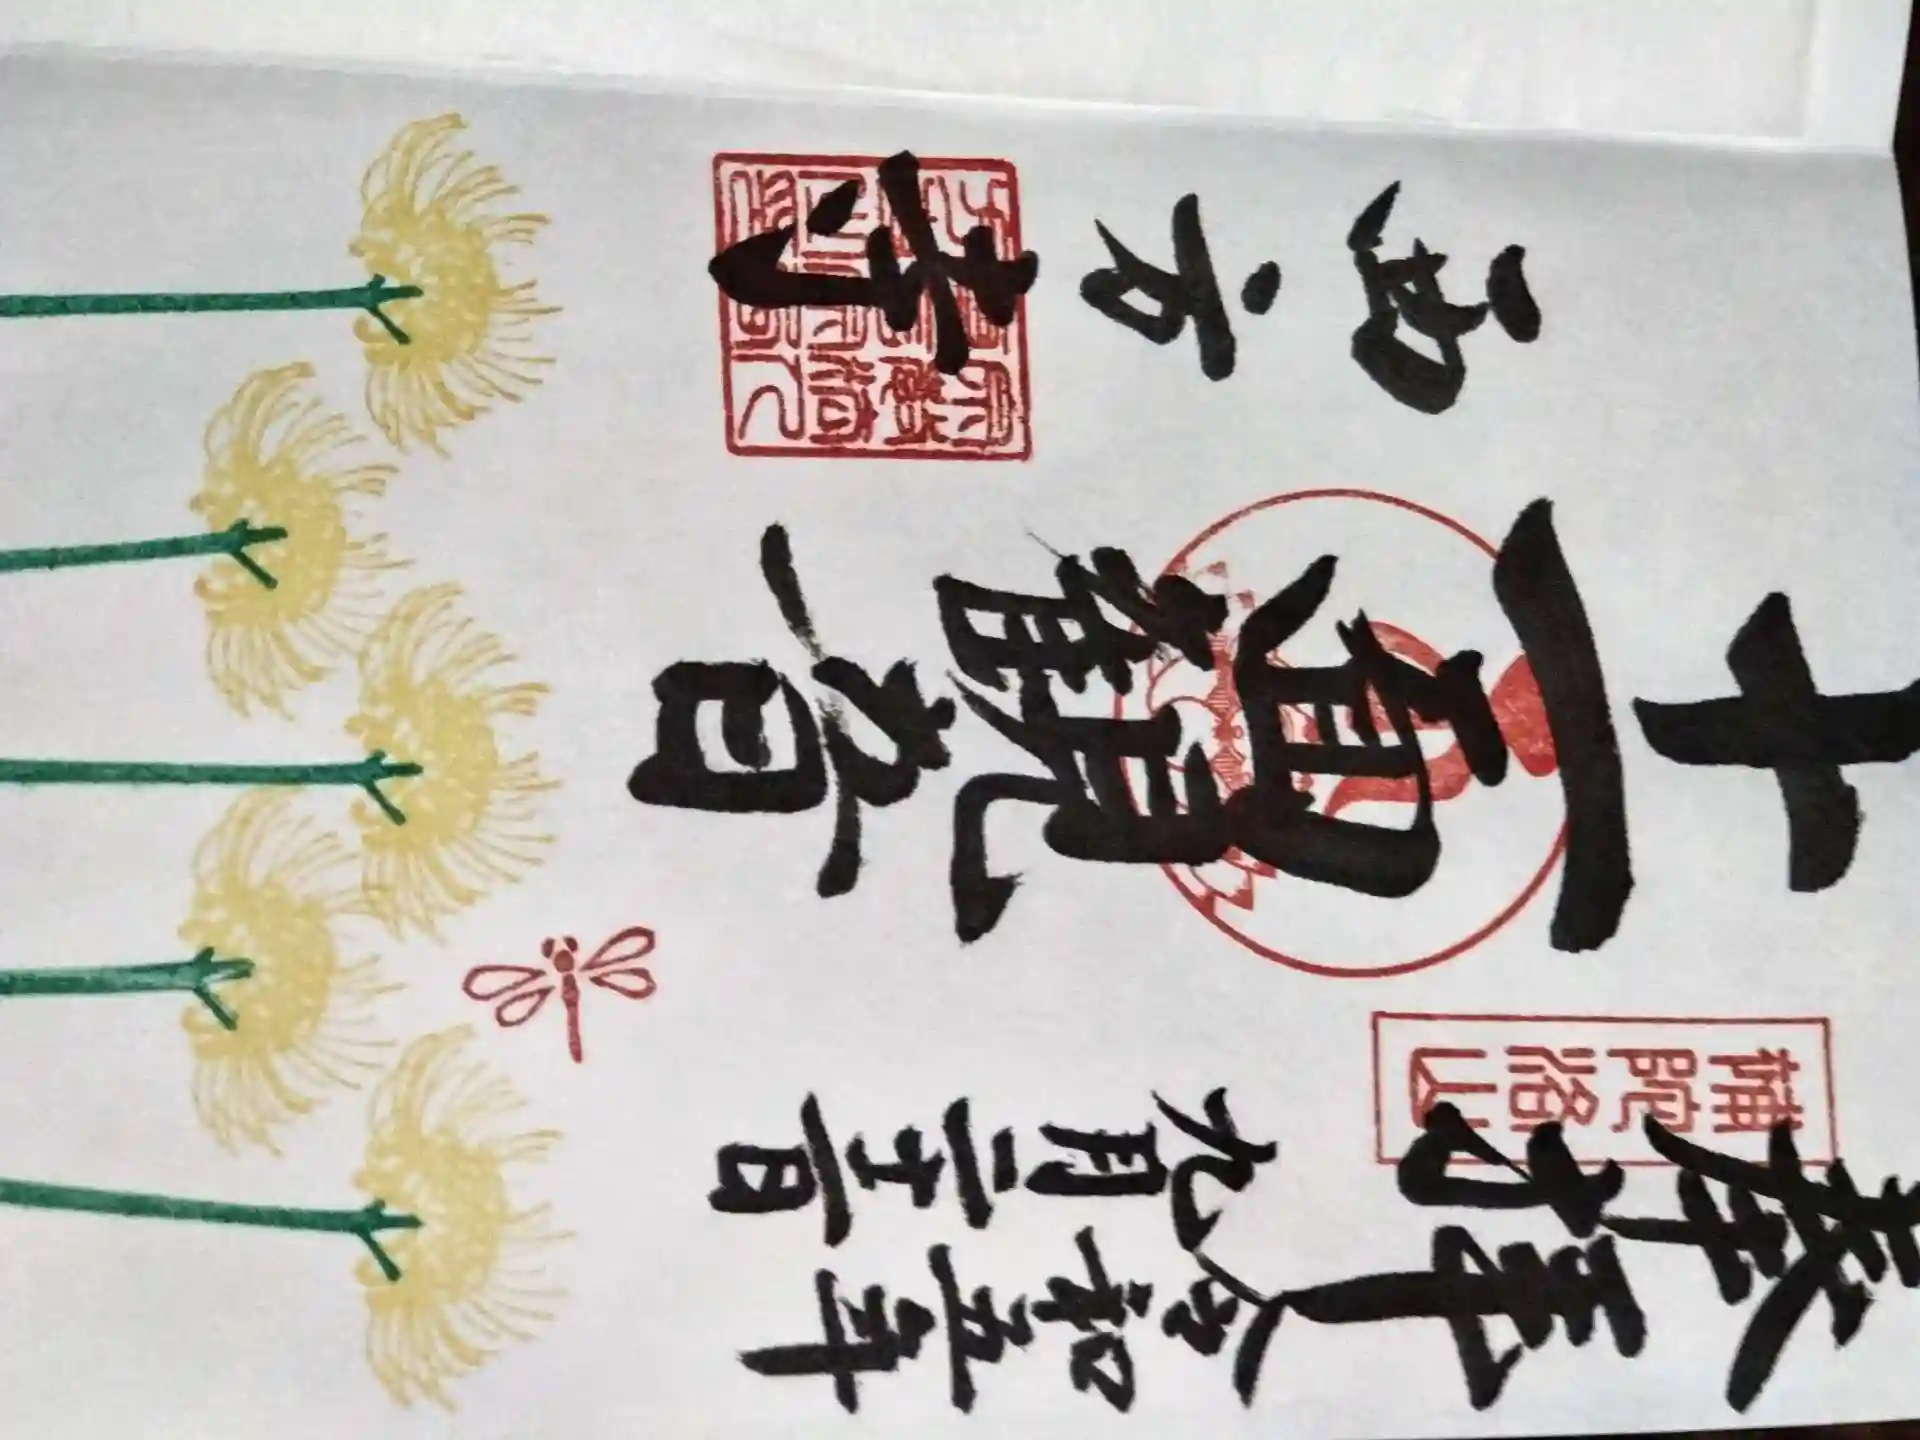 奉拝
令和五年
九月二十一日
補陀洛山
十一面観音
西方寺